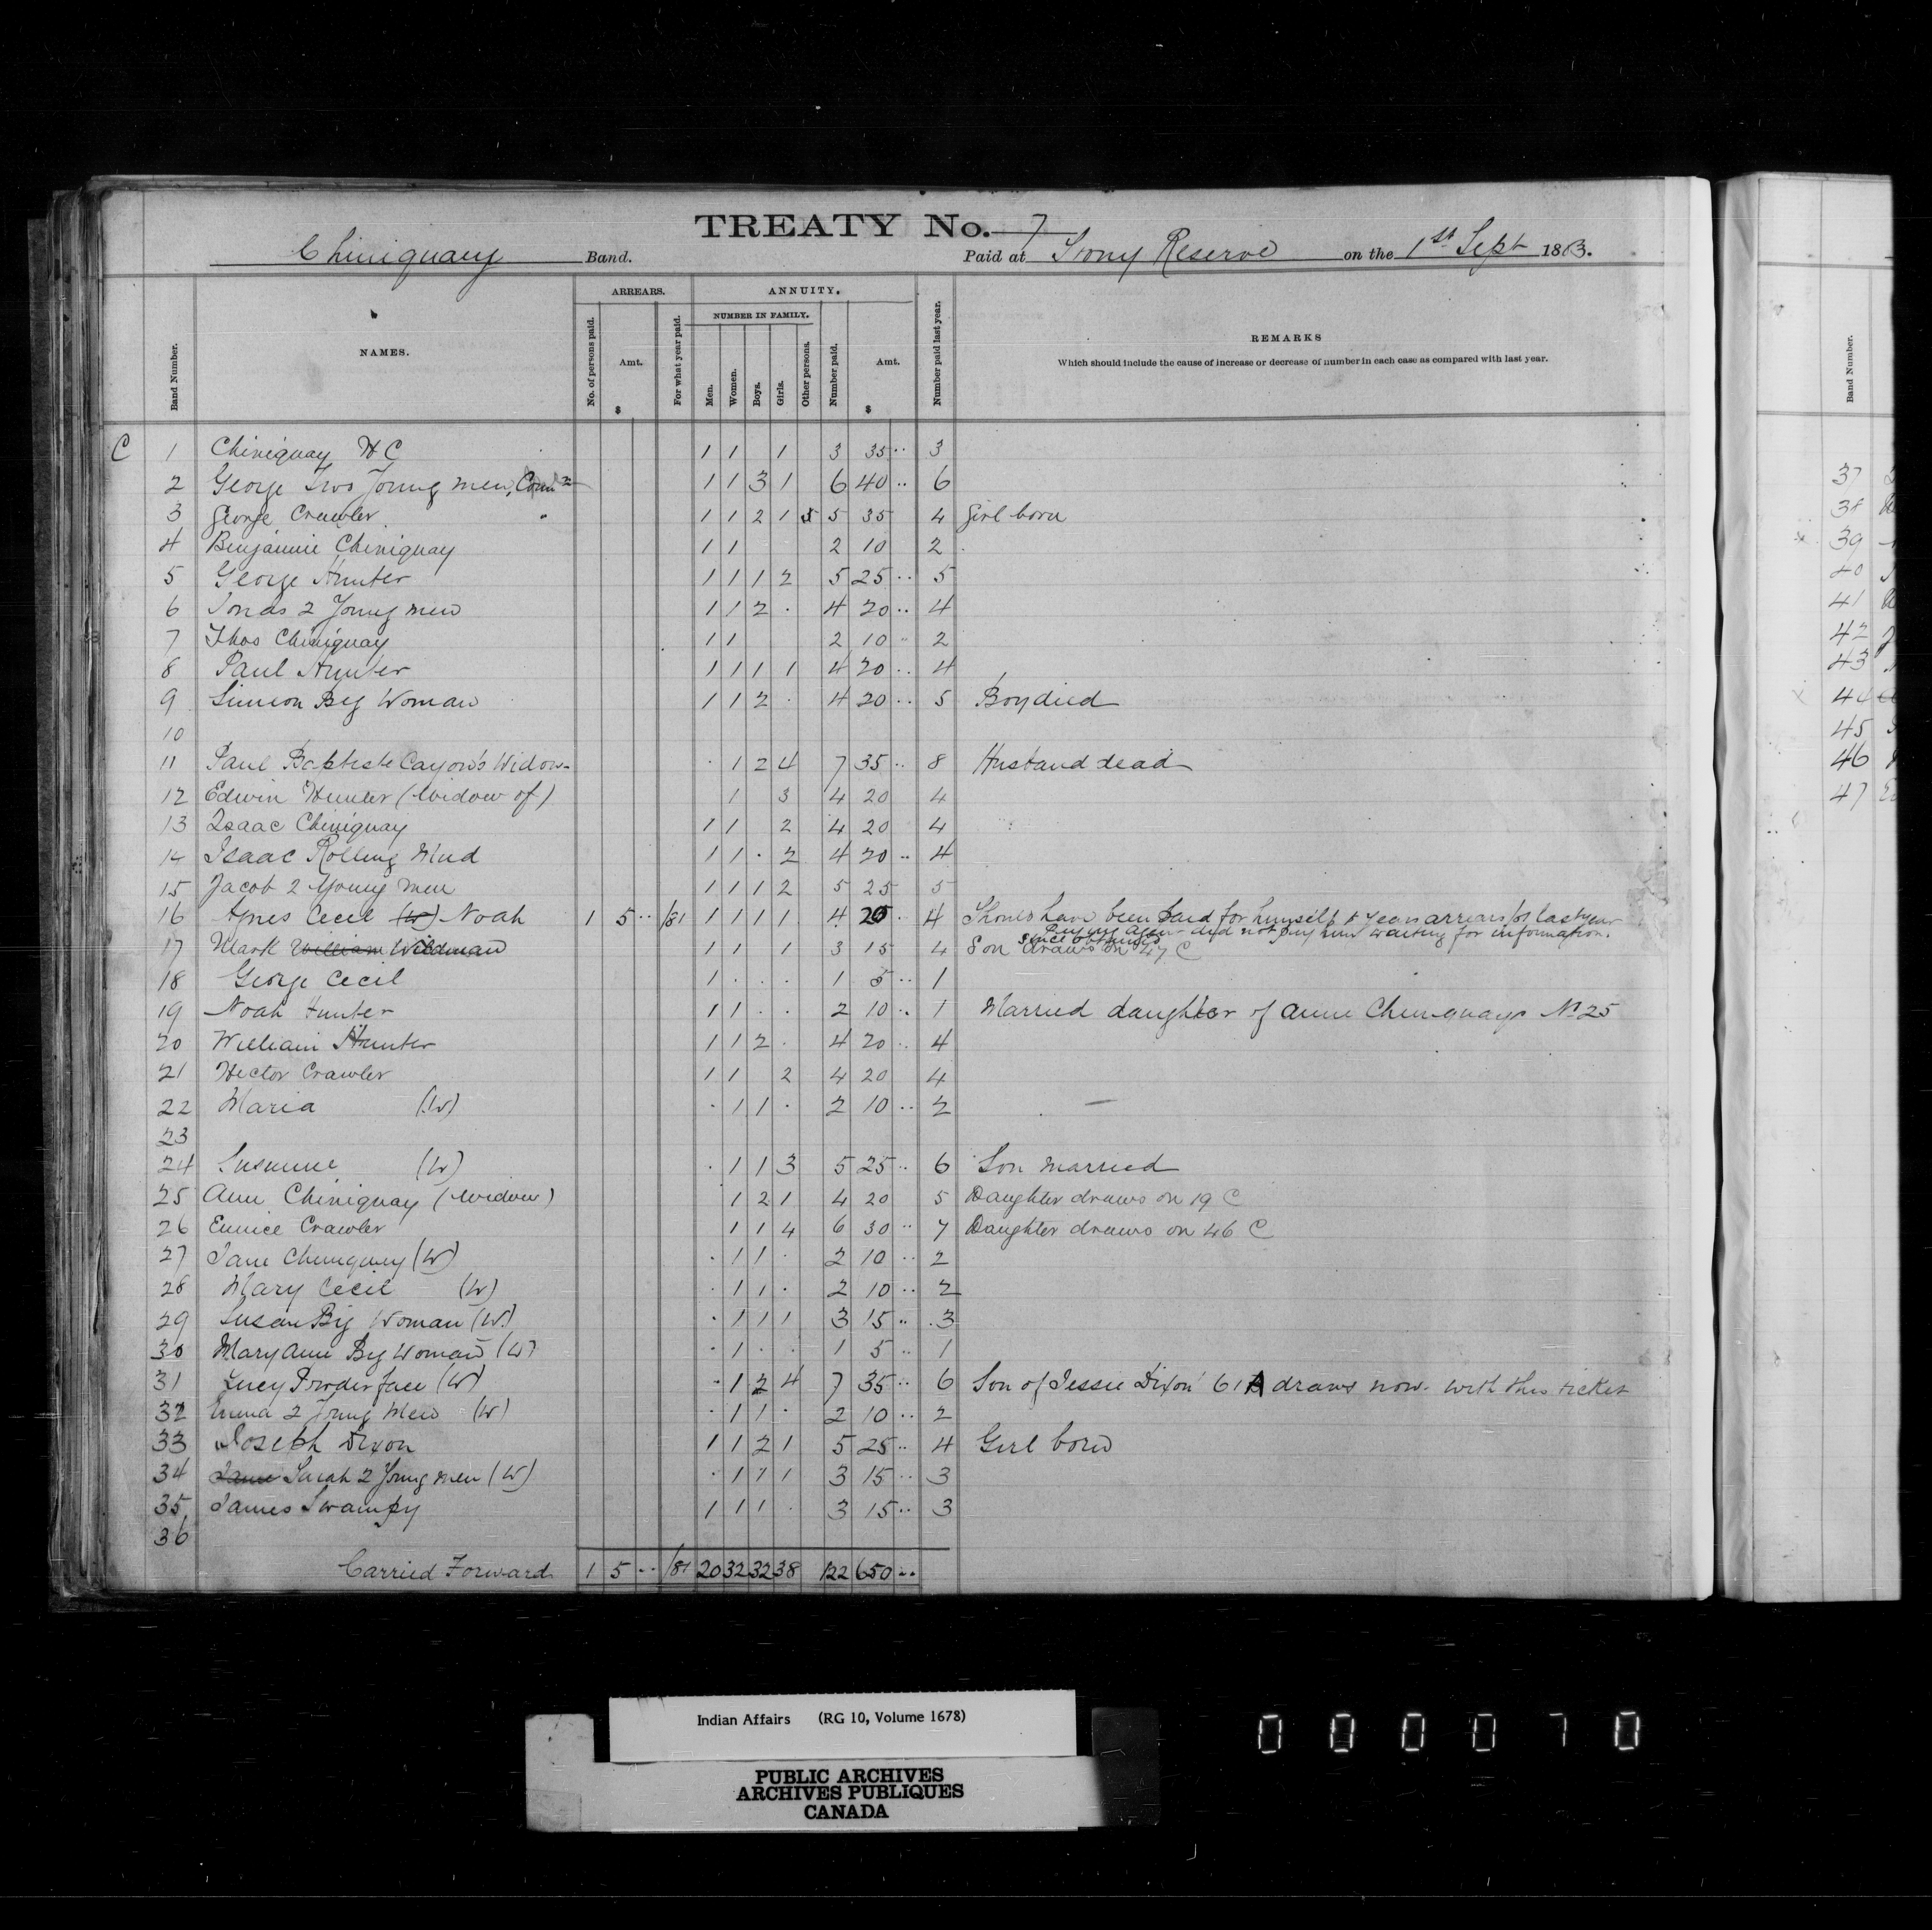 TREATY No. 7
Chiniquay Band. Paid at Stony Reserve on the 1st Sept 1883.
Band Number. NAMES. ARREARS. No. of persons paid. Amt. $ For what year paid. ANNUITY. NUMBER IN FAMILY. Men. Women. Boys. Girls. Other persons. Number paid. Amt. $ Number paid last year. REMARKS
Which should include the cause of increase or decrease of number in each case as compared with last year.
Band Number.
C 1 Chiniquay H C 1 1 1 3 35 .. 3
2 George Two Young men, Coun 1 1 3 1 6 40 .. 6
3 George Crawler 1 1 2 1 5 5 35 4 Girl born
4 Benjamin Chiniquay 1 1 2 10 2
5 George Hunter 1 1 1 2 5 25 .. 5
6 Jonas 2 Young men 1 1 2 . 4 20 .. 4
7 Thos Chiniquay 1 1 2 10 .. 2
8 Paul Hunter 1 1 1 1 4 20 .. 4
9 Simeon Big Woman 1 1 2 . 4 20 .. 5 Boy died
10
11 Paul Baptiste Cayou's Widow . 1 2 4 7 35 .. 8 Husband dead
12 Edwin Hunter (widow of) 1 3 4 20 4
13 Isaac Chiniquay 1 1 2 4 20 4
14 Isaac Rolling Mud 1 1 . 2 4 20 .. 4
15 Jacob 2 Young men 1 1 1 2 5 25 5
16 Agnes Cecil (W) Noah 1 5 .. /81 1 1 1 1 4 20 . 4 Should have been paid for himself & years arrears for last year
Paying again did not pay him waiting for information.
since obtained
17 Mark William Wildman 1 1 1 3 15 4 Son draws on 47 C
18 George Cecil 1 . . . 1 5 .. 1
19 Noah Hunter 1 1 . . 2 10 .. 1 Married daughter of Anne Chiniquay No 25
20 William Hunter 1 1 2 . 4 20 .. 4
21 Hector Crawler 1 1 2 4 20 4
22 Maria (W) . 1 1 . 2 10 .. 2 —
23
24 Susanne (W) . 1 1 3 5 25 .. 6 Son married
25 Ann Chiniquay (Widow) 1 2 1 4 20 5 Daughter draws on 19 C
26 Eunice Crawler 1 1 4 6 30 .. 7 Daughter draws on 46 C
27 Jane Chiniquay (W) . 1 1 . 2 10 .. 2
28 Mary Cecil (W) . 1 1 . 2 10 .. 2
29 Susan Big Woman (W.) . 1 1 1 3 15 .. 3
30 Mary Ann Big Woman (W) . 1 . . 1 5 .. 1
31 Lucy Powder face (W) . 1 2 4 7 35 .. 6 Son of Jessie Dixon 61 A draws now with this ticket
32 Emma 2 Young Men (W) . 1 1 . 2 10 .. 2
33 Joseph Dixon 1 1 2 1 5 25 .. 4 Girl born
34 Jane Sarah 2 Young men (W) . 1 1 1 3 15 .. 3
35 James Swampy 1 1 1 . 3 15 .. 3
36
Carried Forward 1 5 .. /81 20 32 32 38 122 650 ..
37
38
39
40
41
42
43
44
45
46
47
Indian Affairs (RG 10, Volume 1678)
PUBLIC ARCHIVES
ARCHIVES PUBLIQUES
CANADA
000070